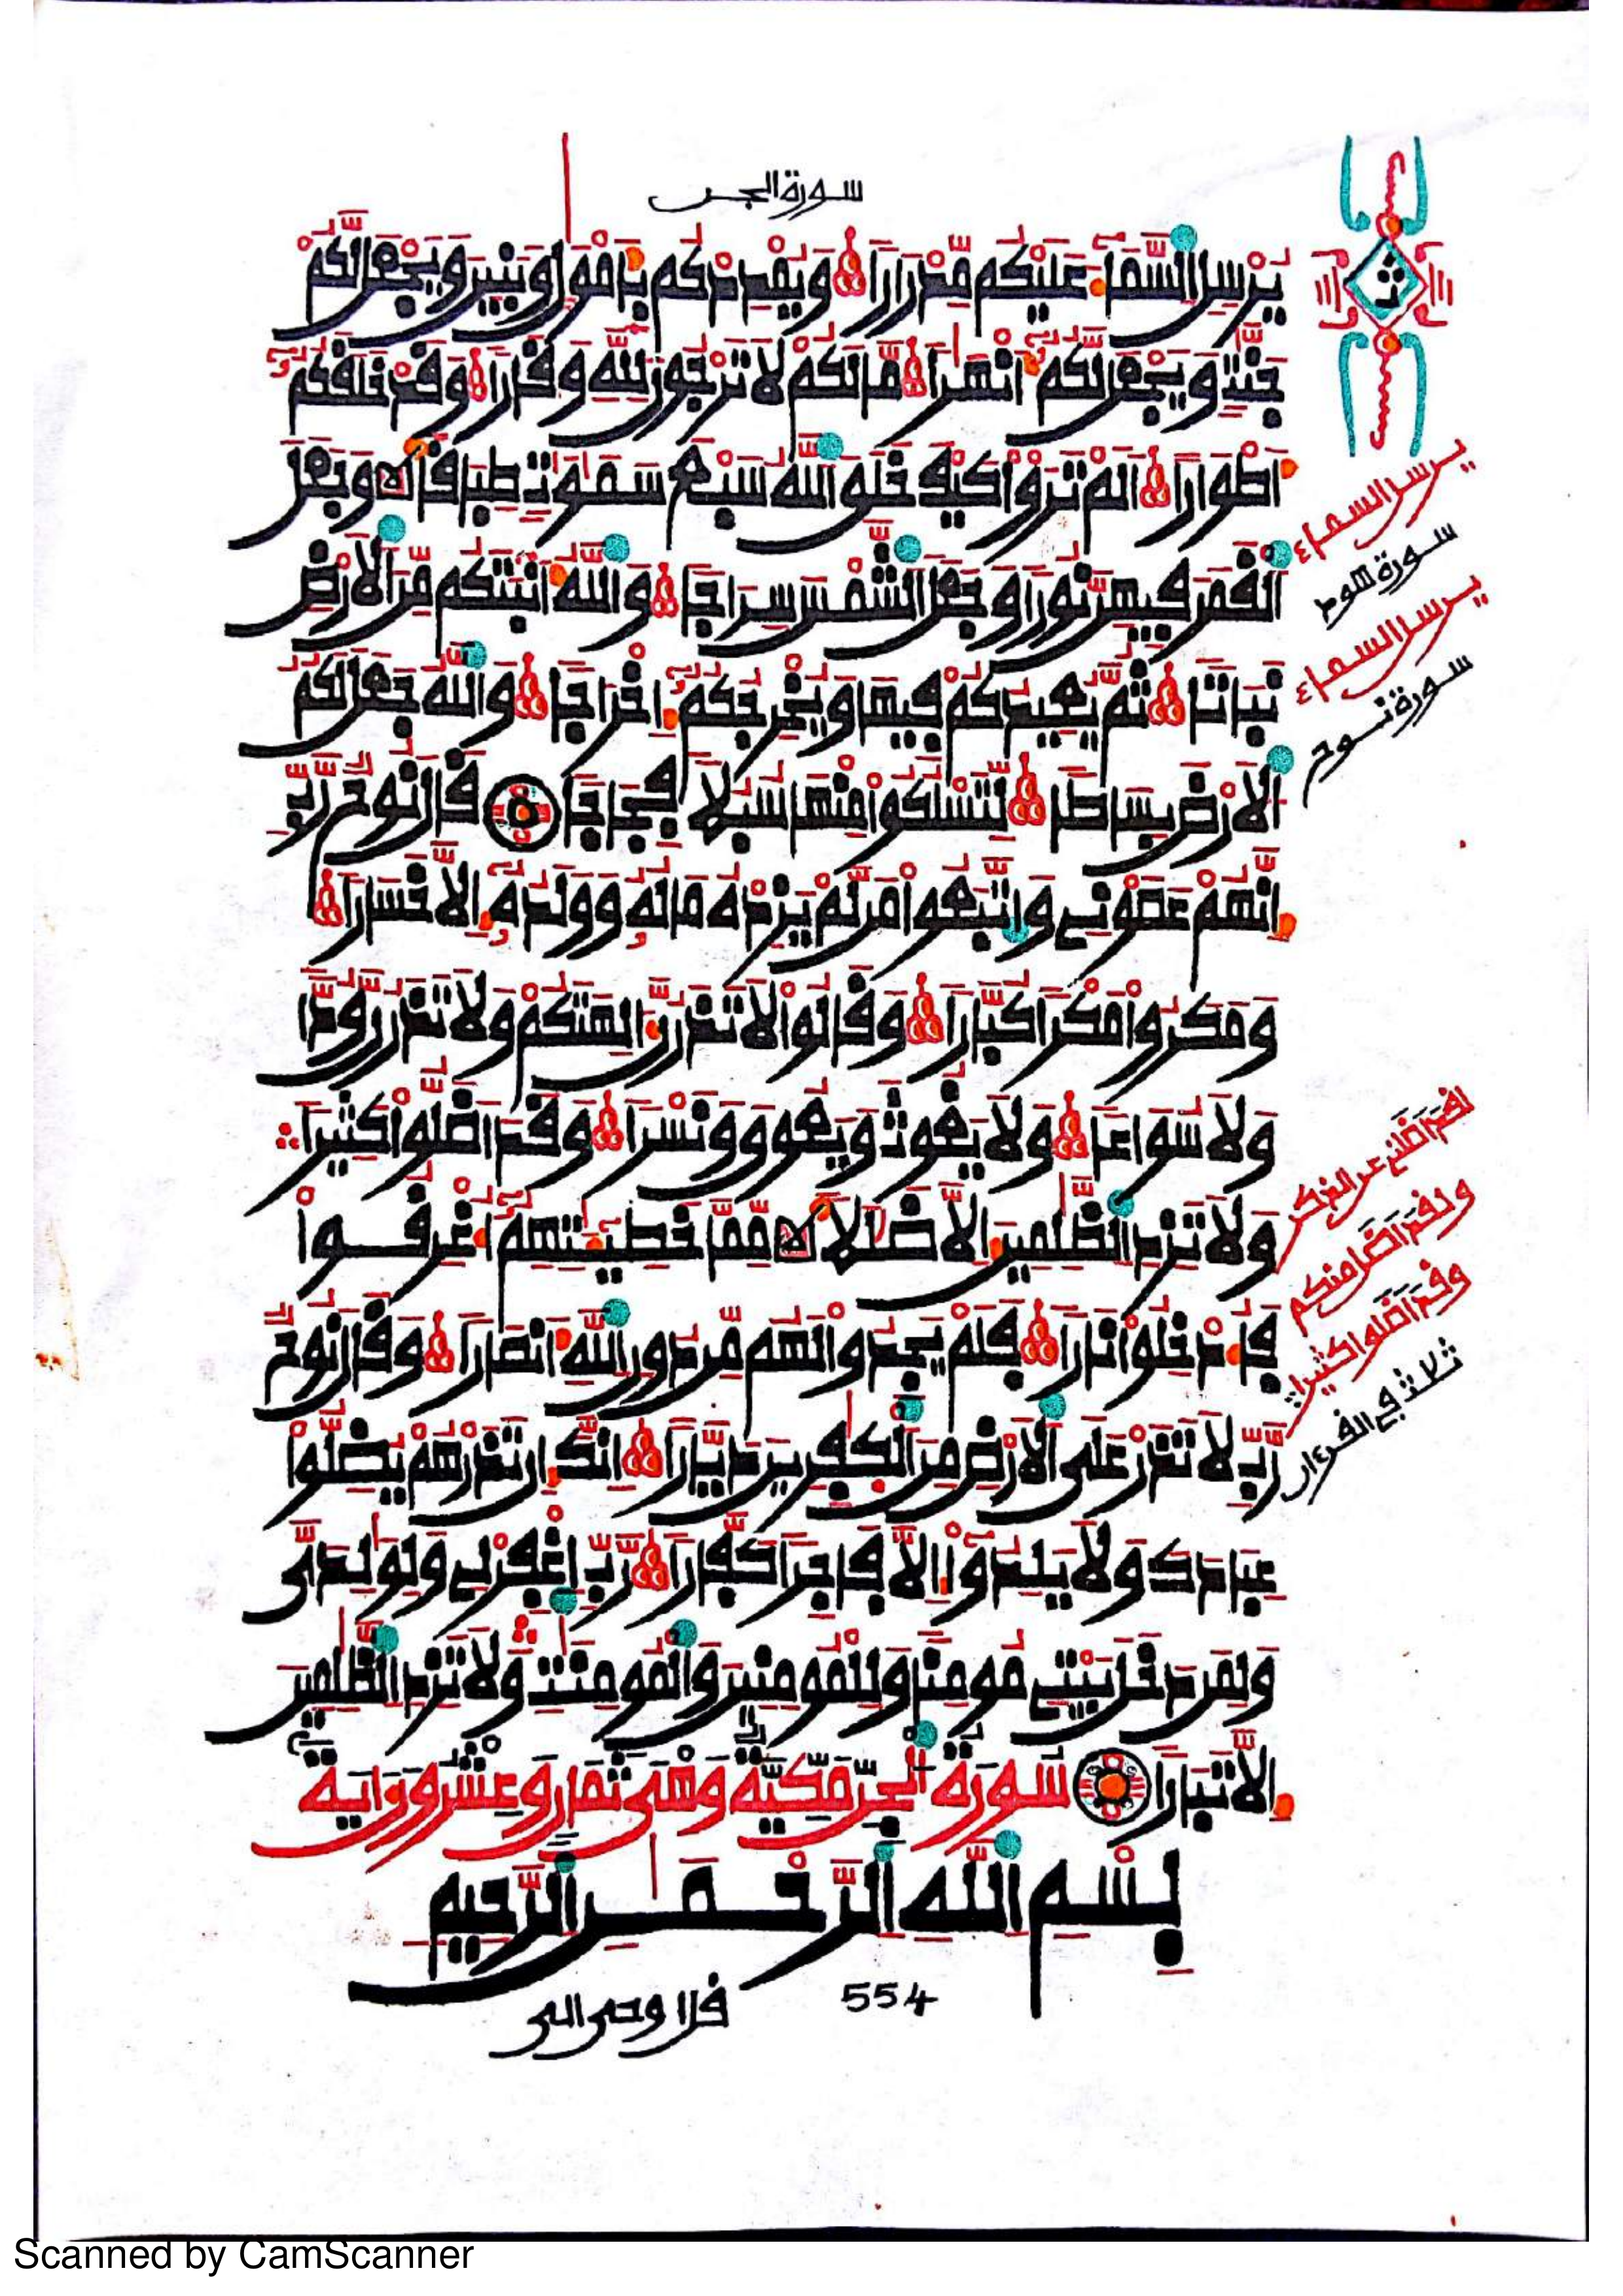 سورة الجن
ث
يُرْسِلِ السَّمَآءَ عَلَيْكُم مِّدْرَارًا وَيُمْدِدْكُم بِأَمْوَالٍ وَبَنِينَ وَيَجْعَل لَّكُمْ
جَنَّٰتٍ وَيَجْعَل لَّكُمُۥٓ أَنْهَٰرًا مَّا لَكُمْ لَا تَرْجُونَ لِلَّهِ وَقَارًا وَقَدْ خَلَقَكُمُۥٓ
أَطْوَارًا أَلَمْ تَرَوْا۟ كَيْفَ خَلَقَ ٱللَّهُ سَبْعَ سَمَٰوَٰتٍ طِبَاقًا وَجَعَلَ
ٱلْقَمَرَ فِيهِنَّ نُورًا وَجَعَلَ ٱلشَّمْسَ سِرَاجًا وَٱللَّهُ أَنۢبَتَكُم مِّنَ ٱلْأَرْضِ
نَبَاتًا ثُمَّ يُعِيدُكُمْ فِيهَا وَيُخْرِجُكُمُۥٓ إِخْرَاجًا وَٱللَّهُ جَعَلَ لَكُمُ
ٱلْأَرْضَ بِسَاطًا لِّتَسْلُكُوا۟ مِنْهَا سُبُلًا فِجَاجًا قَالَ نُوحٌ رَّبِّ
إِنَّهُمْ عَصَوْنِى وَٱتَّبَعُوا۟ مَن لَّمْ يَزِدْهُ مَالُهُۥ وَوَلَدُهُۥٓ إِلَّا خَسَارًا
وَمَكَرُوا۟ مَكْرًا كُبَّارًا وَقَالُوا۟ لَا تَذَرُنَّ ءَالِهَتَكُمْ وَلَا تَذَرُنَّ وُدًّا
وَلَا سُوَاعًا وَلَا يَغُوثَ وَيَعُوقَ وَنَسْرًا وَقَدْ أَضَلُّوا۟ كَثِيرًا
وَلَا تَزِدِ ٱلظَّٰلِمِينَ إِلَّا ضَلَٰلًا مِّمَّا خَطِيٓـَٰٔتِهِمُۥٓ أُغْرِقُوا۟
فَأُدْخِلُوا۟ نَارًا فَلَمْ يَجِدُوا۟ لَهُم مِّن دُونِ ٱللَّهِ أَنصَارًا وَقَالَ نُوحٌ
رَّبِّ لَا تَذَرْ عَلَى ٱلْأَرْضِ مِنَ ٱلْكَٰفِرِينَ دَيَّارًا إِنَّكَ إِن تَذَرْهُمْ يُضِلُّوا۟
عِبَادَكَ وَلَا يَلِدُوٓا۟ إِلَّا فَاجِرًا كَفَّارًا رَّبِّ ٱغْفِرْ لِى وَلِوَٰلِدَىَّ
وَلِمَن دَخَلَ بَيْتِى مُومِنًا وَلِلْمُومِنِينَ وَٱلْمُومِنَٰتِ وَلَا تَزِدِ ٱلظَّٰلِمِينَ
إِلَّا تَبَارًا سُورَةُ ٱلْجِنِّ مَكِّيَّةٌ وَهْىَ ثَمَانٌ وَعِشْرُونَ ءَايَةً
بِسْمِ ٱللَّهِ ٱلرَّحْمَٰنِ ٱلرَّحِيمِ
554
قل اوحى الى
يرسل السماء
سورة هود
يرسل السماء
سورة نوح
لقد اضلنى عن الذكر
ولقد اضل منكم
وقد اضلوا كثيرا
ثلاث فى القرءان
Scanned by CamScanner